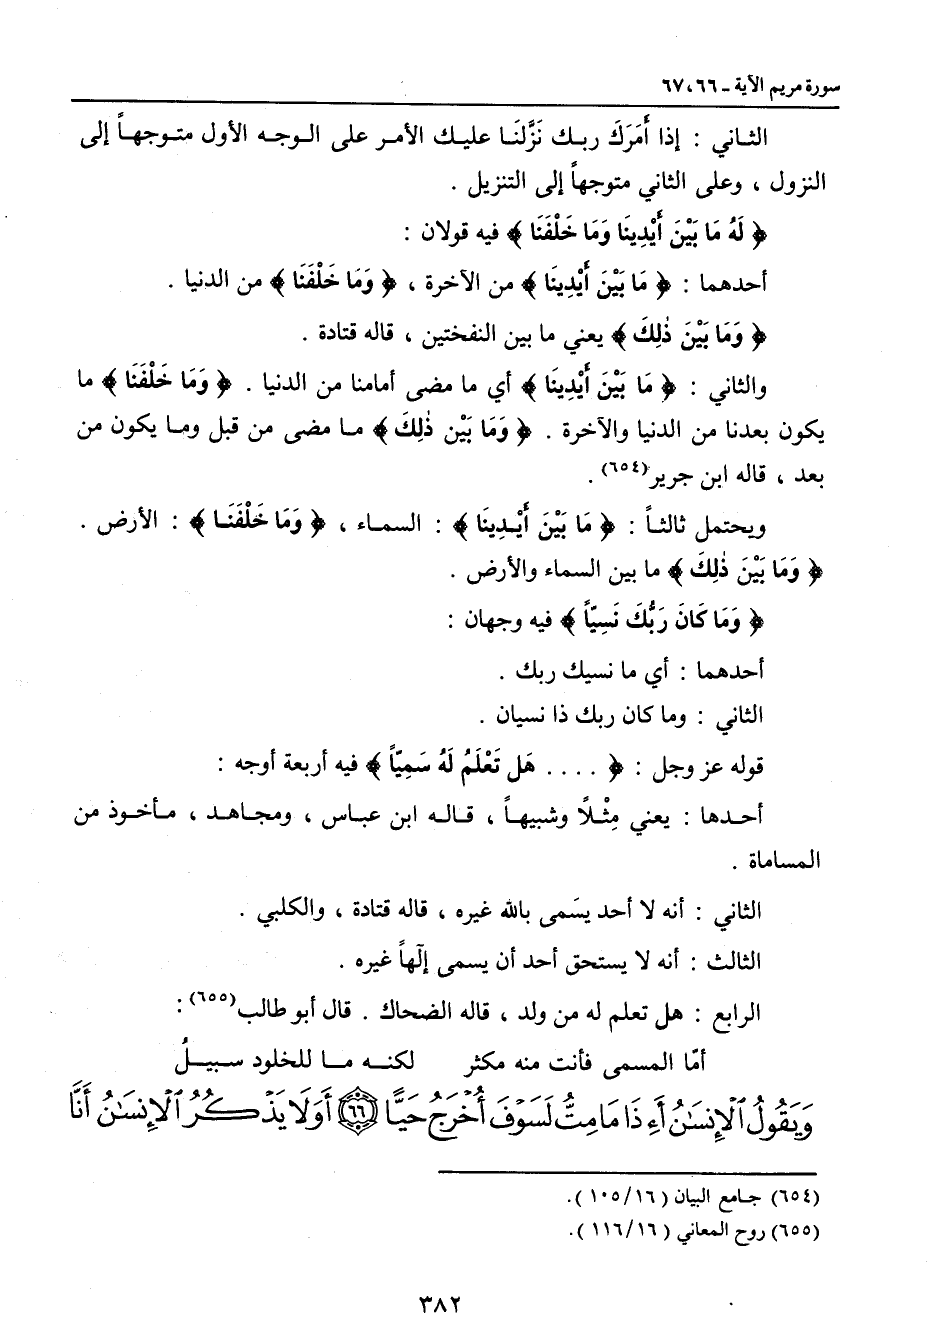 سورة مريم الآية ـ ٦٦، ٦٧
الثاني : إذا أَمَرَكَ ربك نَزَّلنَا عليك الأمر على الوجه الأول متوجهاً إلى
النزول ، وعلى الثاني متوجهاً إلى التنزيل .
﴿ لَهُ مَا بَيْنَ أَيْدِينَا وَمَا خَلْفَنَا ﴾ فيه قولان :
أحدهما : ﴿ مَا بَيْنَ أَيْدِينَا ﴾ من الآخرة ، ﴿ وَمَا خَلْفَنَا ﴾ من الدنيا .
﴿ وَمَا بَيْنَ ذٰلِكَ ﴾ يعني ما بين النفختين ، قاله قتادة .
والثاني : ﴿ مَا بَيْنَ أَيْدِينَا ﴾ أي ما مضى أمامنا من الدنيا . ﴿ وَمَا خَلْفَنَا ﴾ ما
يكون بعدنا من الدنيا والآخرة . ﴿ وَمَا بَيْن ذٰلِكَ ﴾ ما مضى من قبل وما يكون من
بعد ، قاله ابن جرير(٦٥٤) .
ويحتمل ثالثاً : ﴿ مَا بَيْنَ أَيْدِينَا ﴾ : السماء ، ﴿ وَمَا خَلْفَنَا ﴾ : الأرض .
﴿ وَمَا بَيْنَ ذٰلِكَ ﴾ ما بين السماء والأرض .
﴿ وَمَا كَانَ رَبُّكَ نَسِيّاً ﴾ فيه وجهان :
أحدهما : أي ما نسيك ربك .
الثاني : وما كان ربك ذا نسيان .
قوله عز وجل : ﴿ .... هَل تَعْلَمُ لَهُ سَمِيّاً ﴾ فيه أربعة أوجه :
أحدها : يعني مِثْلاً وشبيهاً ، قاله ابن عباس ، ومجاهد ، مأخوذ من
المساماة .
الثاني : أنه لا أحد يسَمى بالله غيره ، قاله قتادة ، والكلبي .
الثالث : أنه لا يستحق أحد أن يسمى إلٰهاً غيره .
الرابع : هل تعلم له من ولد ، قاله الضحاك . قال أبو طالب(٦٥٥) :
أمّا المسمى فأنت منه مكثر لكنه ما للخلود سبيلُ
وَيَقُولُ ٱلْإِنسَٰنُ أَءِذَا مَا مِتُّ لَسَوْفَ أُخْرَجُ حَيًّا ﴿٦٦﴾ أَوَلَا يَذْكُرُ ٱلْإِنسَٰنُ أَنَّا
(٦٥٤) جامع البيان (١٠٥/١٦).
(٦٥٥) روح المعاني (١١٦/١٦).
٣٨٢